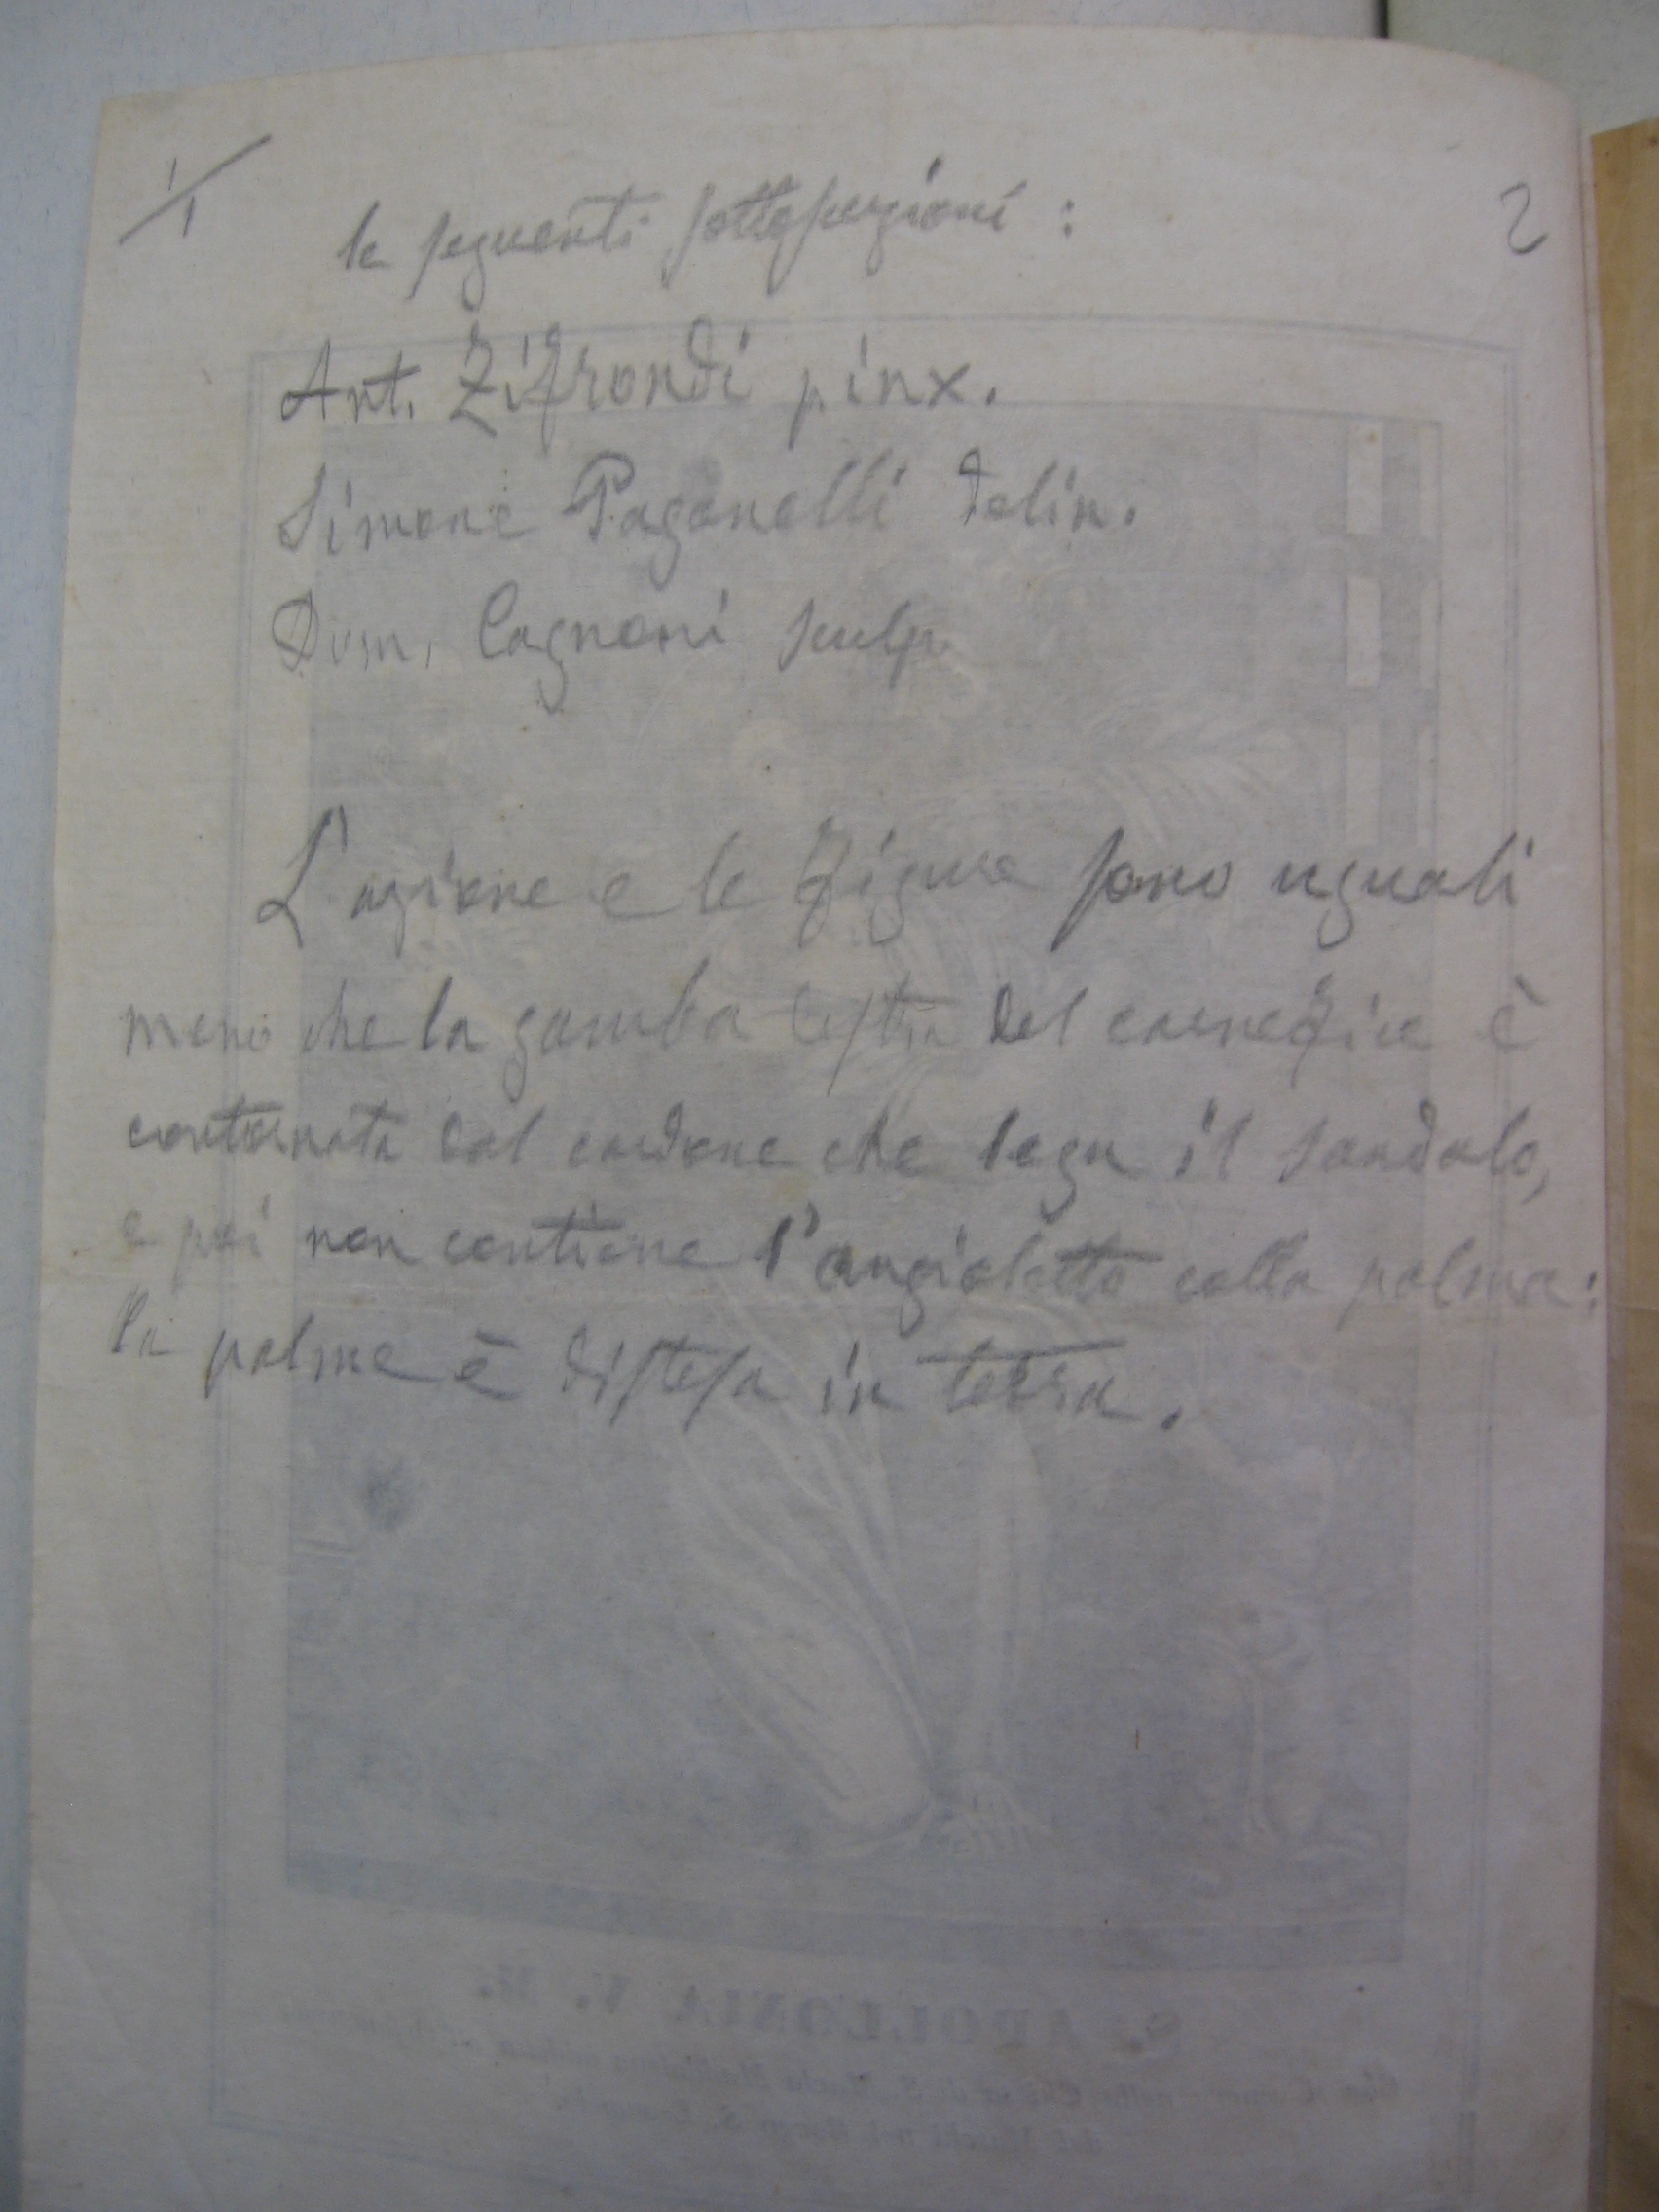 1/1
2
le seguenti sottoscrizioni :
Ant. Zifrondi pinx.
Simone Paganelli delin.
Dom. Cagnoni sculp.
L'azione e le figure sono uguali
meno che la gamba destra del carnefice è
contornata dal cordone che lega il sandalo,
e poi non contiene l'angioletto colla palma:
la palma è distesa in terra.
S. APOLLONIA V. M.